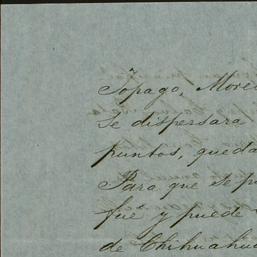 Topago, More
se dispersara
puntos, queda
Para que se p
fué y puede
de Chihuahua